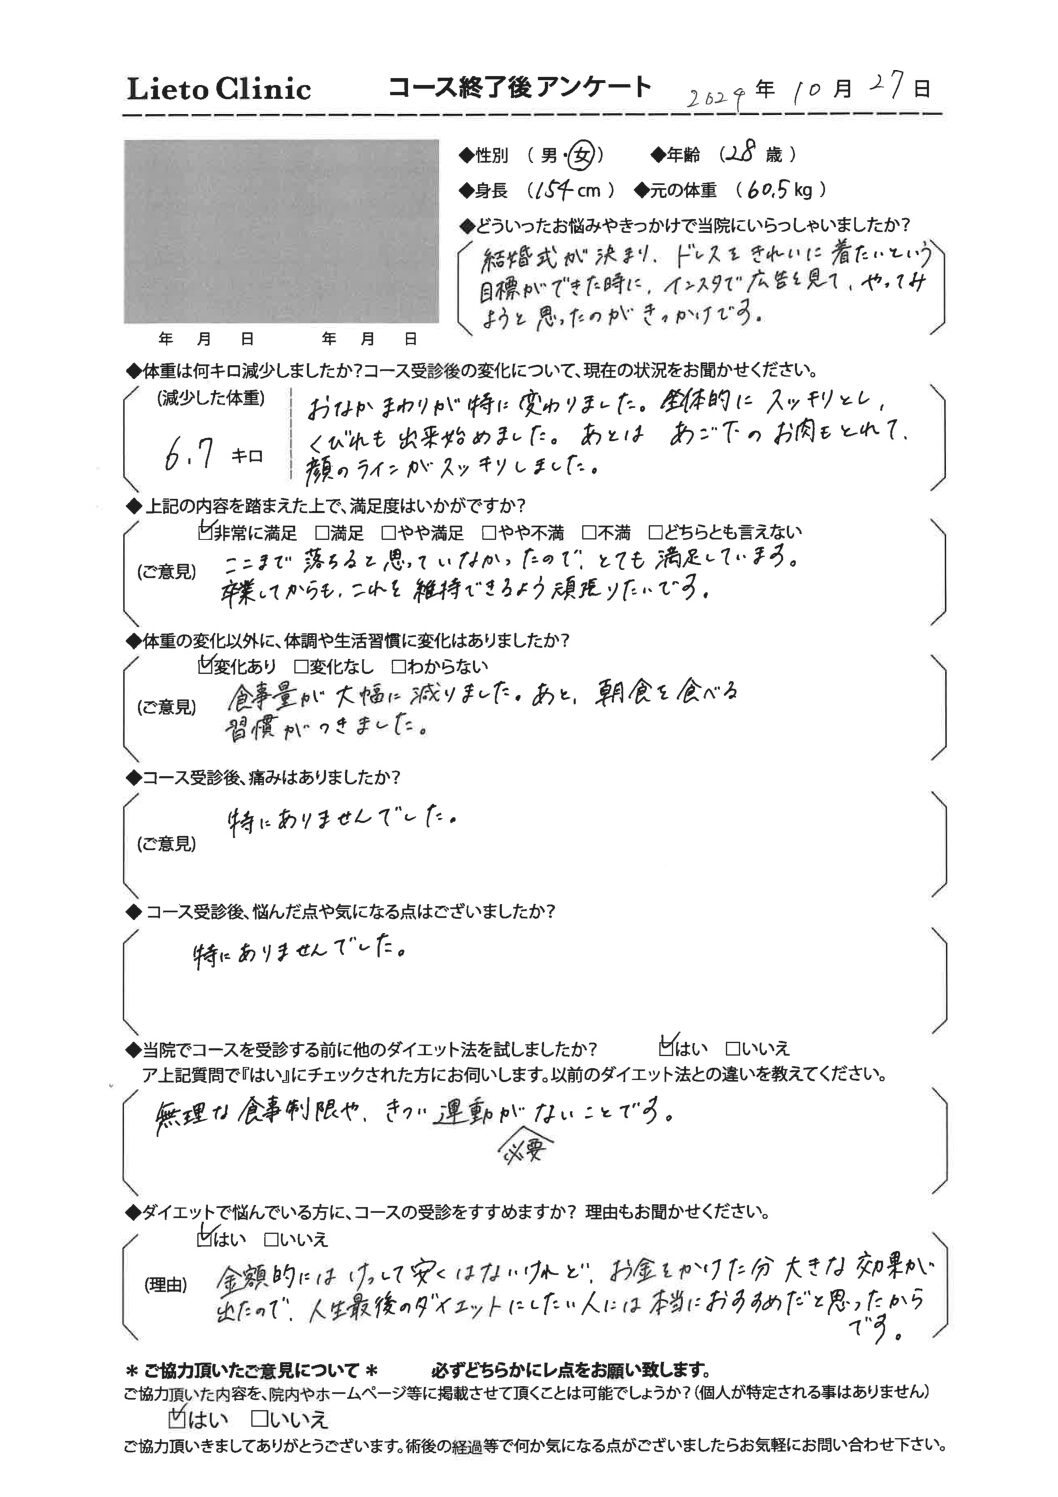 Lieto Clinic コース終了後アンケート 2024年10月27日
◆性別 (男・女) ◆年齢 (28歳)
◆身長 (154cm) ◆元の体重 (60.5kg)
◆どういったお悩みやきっかけで当院にいらっしゃいましたか?
結婚式が決まり、ドレスをきれいに着たいという
目標ができた時に、インスタで広告を見て、やってみ
ようと思ったのがきっかけです。
年 月 日 年 月 日
◆体重は何キロ減少しましたか?コース受診後の変化について、現在の状況をお聞かせください。
(減少した体重)
6.7キロ
おなかまわりが特に変わりました。全体的にスッキリとし、
くびれも出来始めました。あとはあご下のお肉もとれて、
顔のラインがスッキリしました。
◆上記の内容を踏まえた上で、満足度はいかがですか?
☑非常に満足 □満足 □やや満足 □やや不満 □不満 □どちらとも言えない
(ご意見)
ここまで落ちると思っていなかったので、とても満足しています。
卒業してからも、これを維持できるよう頑張りたいです。
◆体重の変化以外に、体調や生活習慣に変化はありましたか?
☑変化あり □変化なし □わからない
(ご意見)
食事量が大幅に減りました。あと、朝食を食べる
習慣がつきました。
◆コース受診後、痛みはありましたか?
特にありませんでした。
(ご意見)
◆コース受診後、悩んだ点や気になる点はございましたか?
特にありませんでした。
◆当院でコースを受診する前に他のダイエット法を試しましたか? ☑はい □いいえ
ア上記質問で『はい』にチェックされた方にお伺いします。以前のダイエット法との違いを教えてください。
無理な食事制限や、きつい運動がないことです。
必要
◆ダイエットで悩んでいる方に、コースの受診をすすめますか? 理由もお聞かせください。
☑はい □いいえ
(理由)
金額的にはけっして安くはないけれど、お金をかけた分大きな効果が
出たので、人生最後のダイエットにしたい人には本当におすすめだと思ったから
です。
＊ご協力頂いたご意見について＊ 必ずどちらかにレ点をお願い致します。
ご協力頂いた内容を、院内やホームページ等に掲載させて頂くことは可能でしょうか?(個人が特定される事はありません)
☑はい □いいえ
ご協力頂いきましてありがとうございます。術後の経過等で何か気になる点がございましたらお気軽にお問い合わせ下さい。